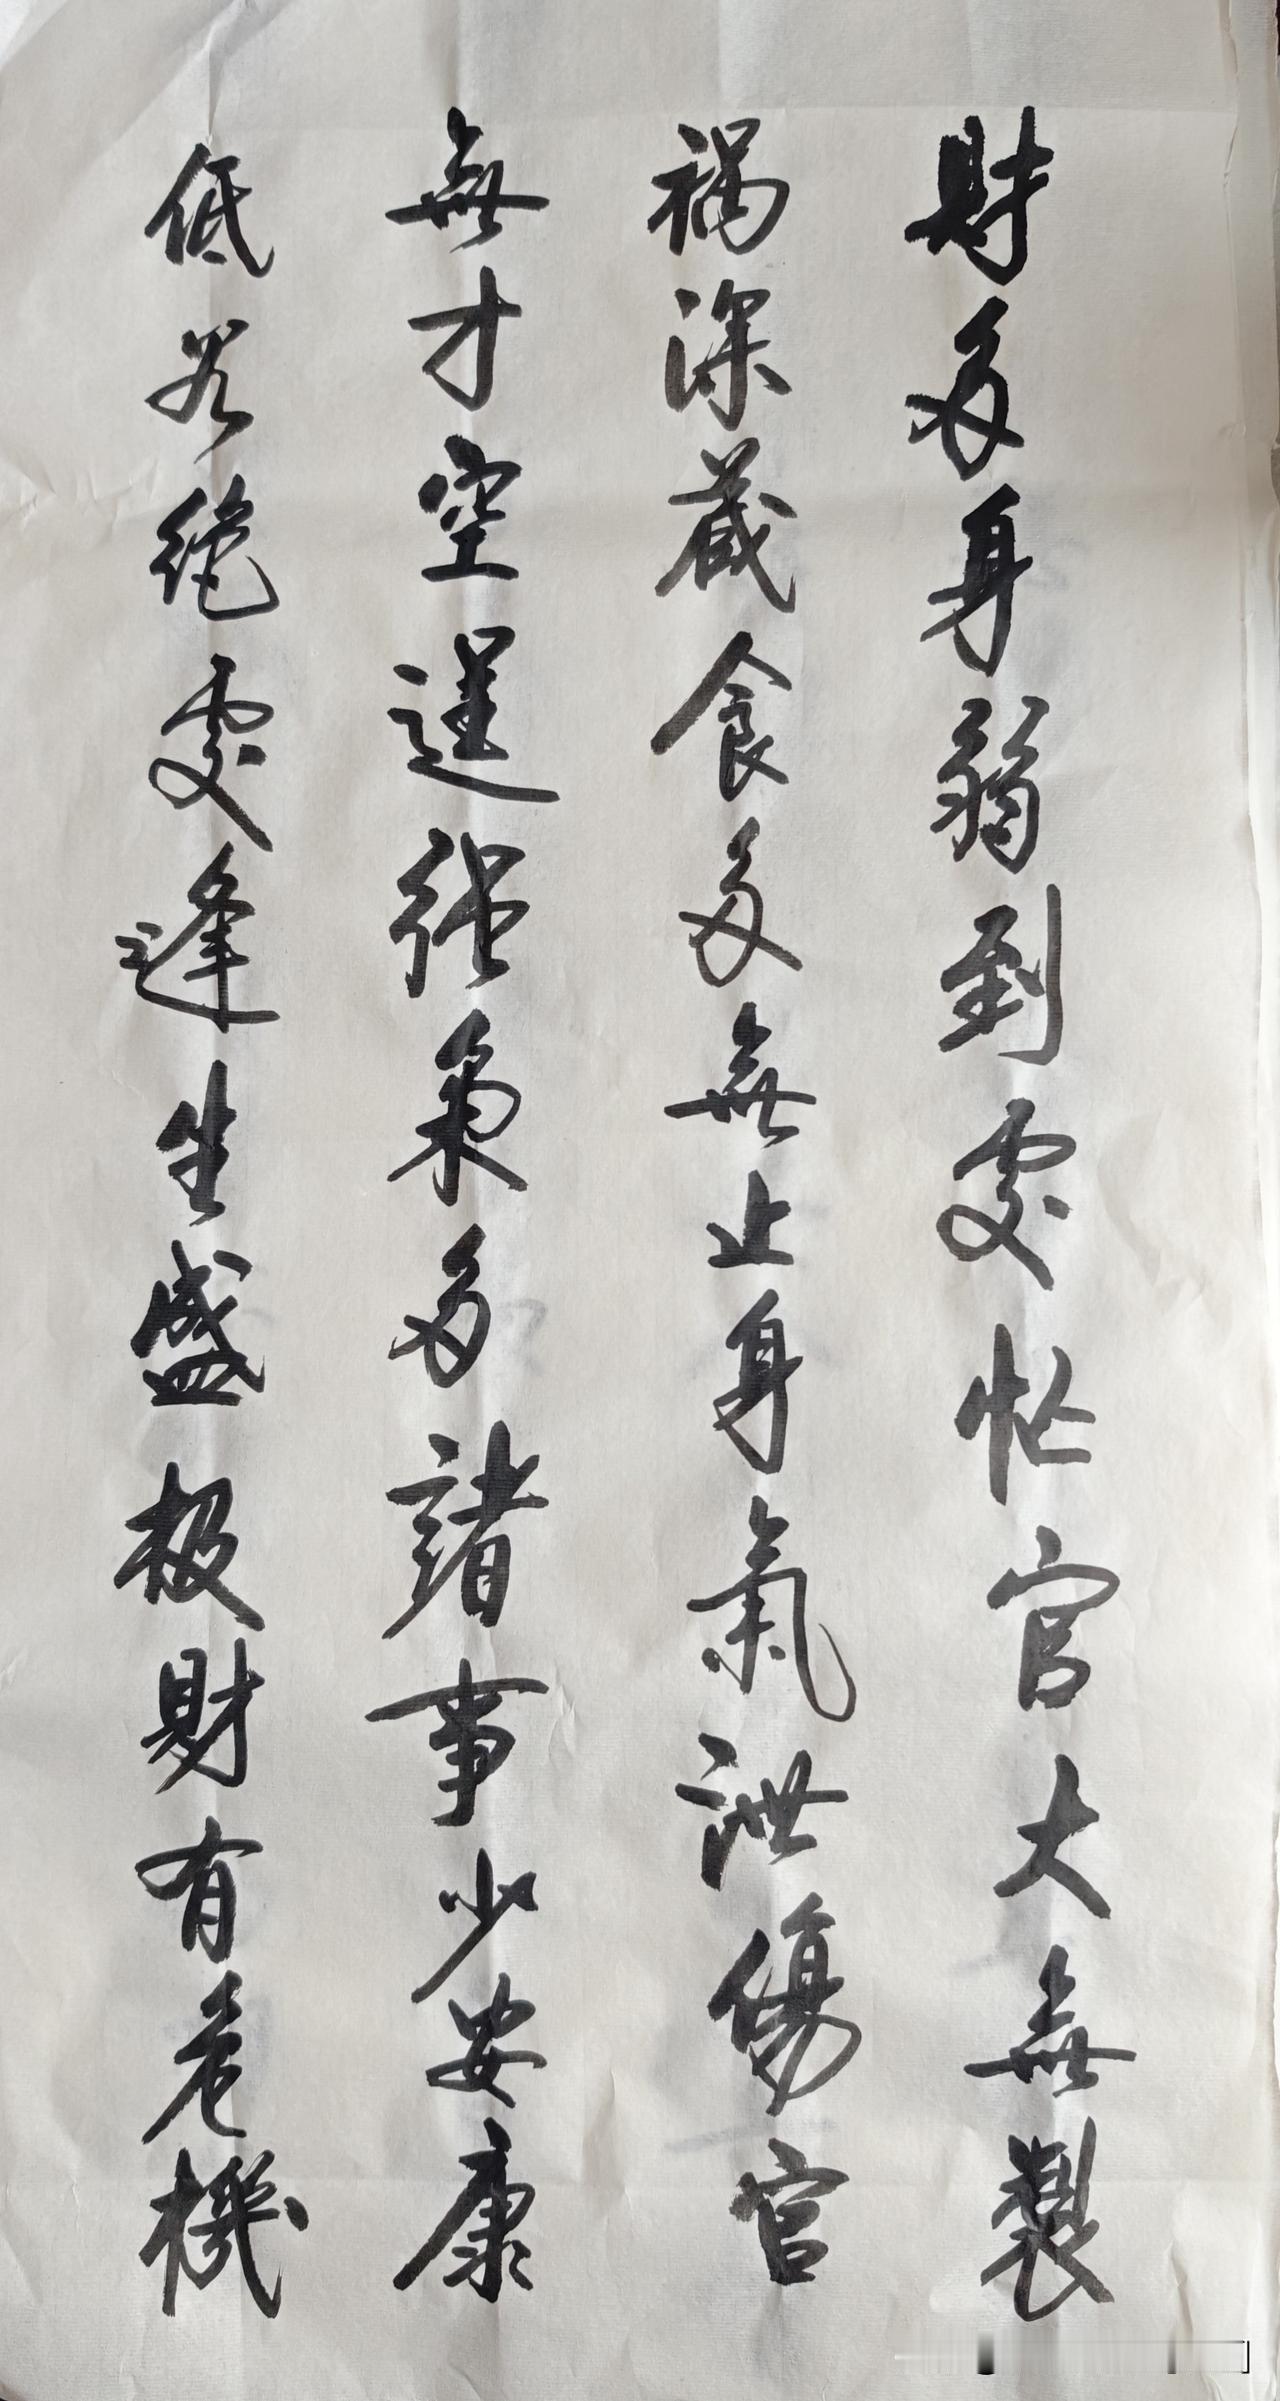 財多身弱到處忙官大無製
禍深藏食多無止身氣泄傷官
無才空逞強梟多諸事少安康
低谷絕處逢生盛极財有危機